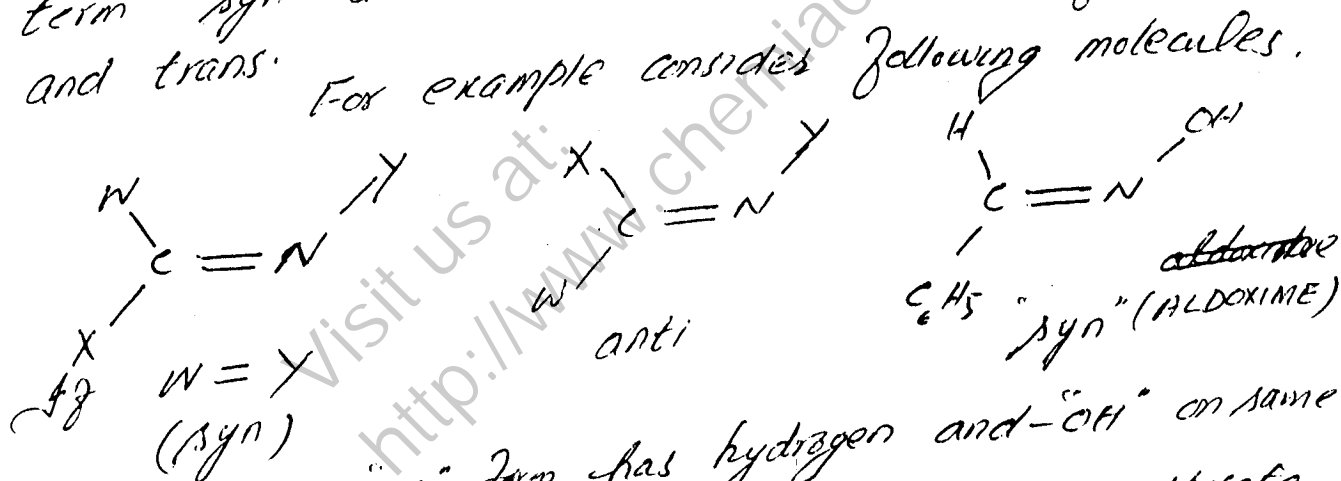 term syn
and trans. For example consider following molecules.
W Y X Y H OH
C = N C = N C = N
X W C6H5 "syn" (ALDOXIME)
If W = Y anti
(syn)
form has hydrogen and -"OH" on same
Visit us at:
http://www.chemiac